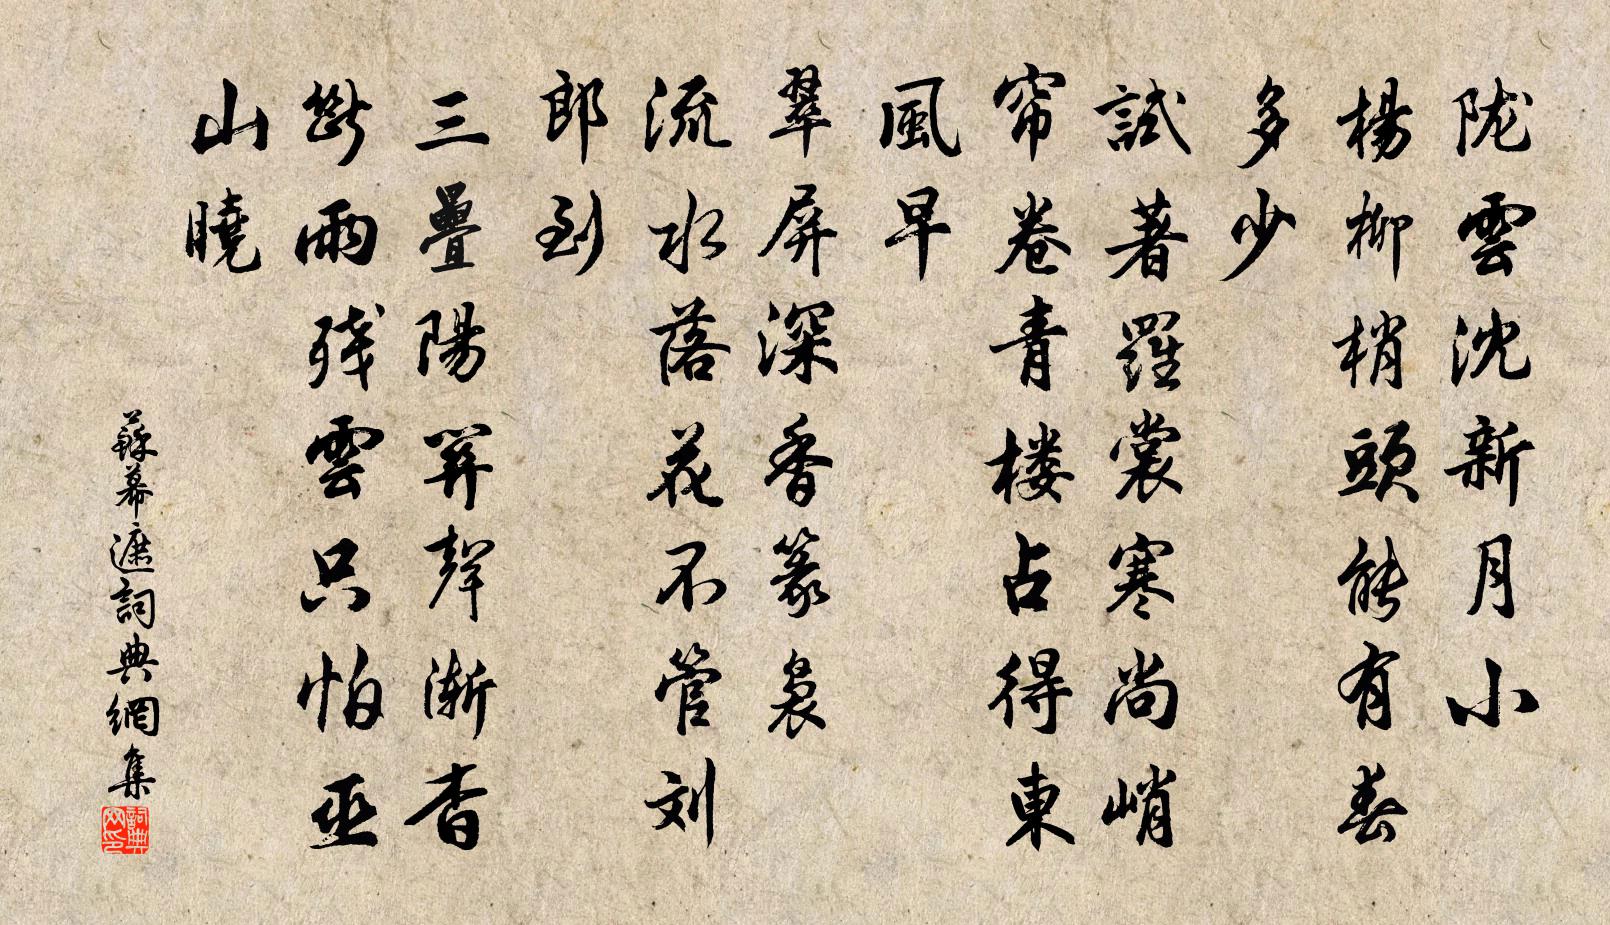 陇雲沈新月小
楊柳梢頭能有春
多少
試著羅裳寒尚峭
帘卷青楼占得東
風早
翠屏深香篆裊
流水落花不管刘
郎到
三疊陽関聲漸杳
斷雨残雲只怕巫
山曉
蘇幕遮詞典網集
詞典网印